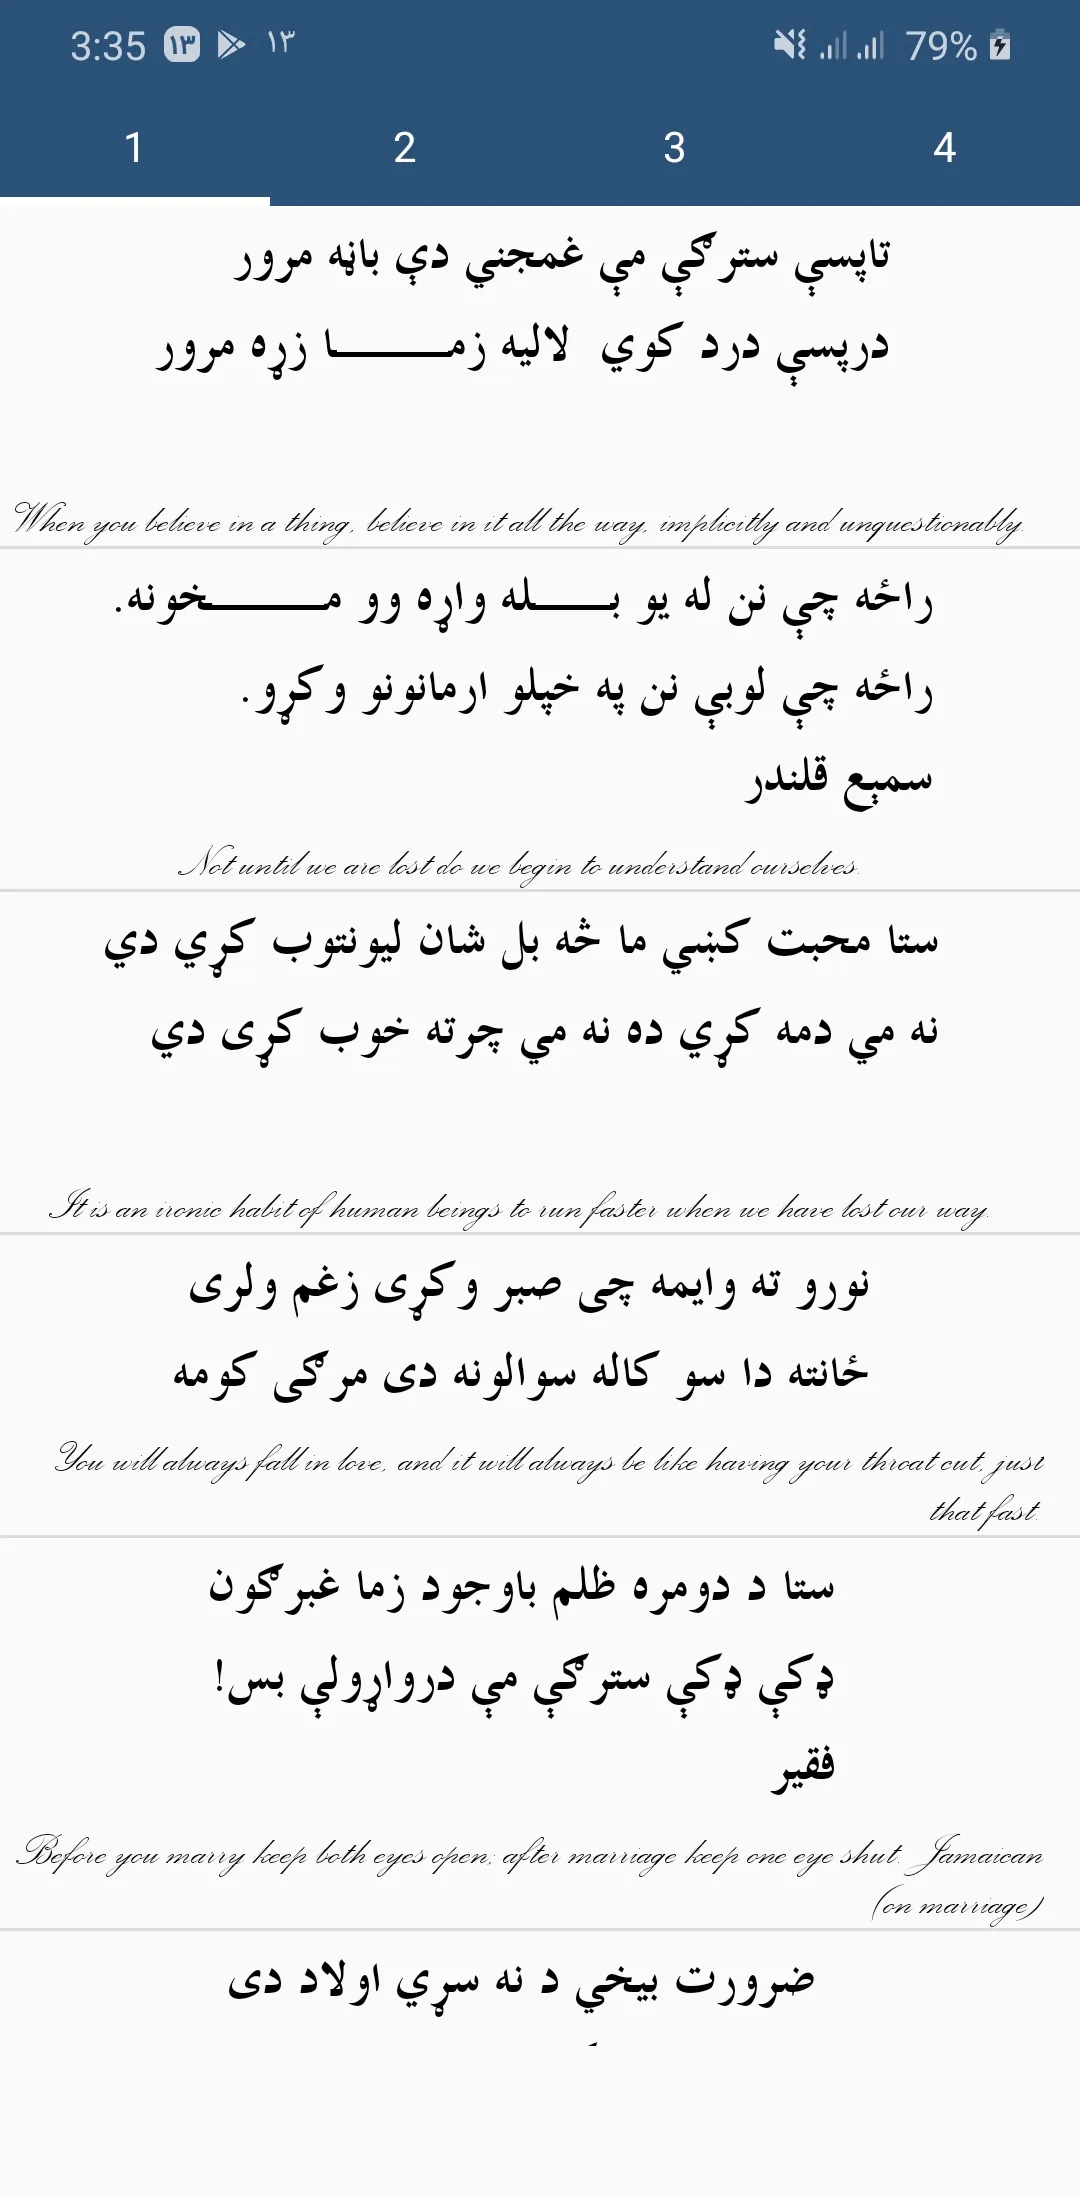 3:35 ۱۳ ۱۳ 79%
1 2 3 4
تاپسې سترګې مې غمجنې دې باڼه مرور
درپسې درد کوي لاليه زمـــــــا زړه مرور
When you believe in a thing, believe in it all the way, implicitly and unquestionably.
راځه چې نن له يو بـــــله واړه وو مـــــــخونه.
راځه چې لوبې نن په خپلو ارمانونو وکړو.
سميع قلندر
Not until we are lost do we begin to understand ourselves.
ستا محبت کښي ما څه بل شان ليونتوب کړي دي
نه مي دمه کړي ده نه مي چرته خوب کړی دي
It is an ironic habit of human beings to run faster when we have lost our way.
نورو ته وايمه چی صبر وکړی زغم ولری
ځانته دا سو کاله سوالونه دی مرګی کومه
You will always fall in love, and it will always be like having your throat cut, just
that fast.
ستا د دومره ظلم باوجود زما غبرګون
ډکې ډکې سترګې مې درواړولې بس!
فقير
Before you marry keep both eyes open; after marriage keep one eye shut. Jamaican
(on marriage)
ضرورت بيخي د نه سړي اولاد دی